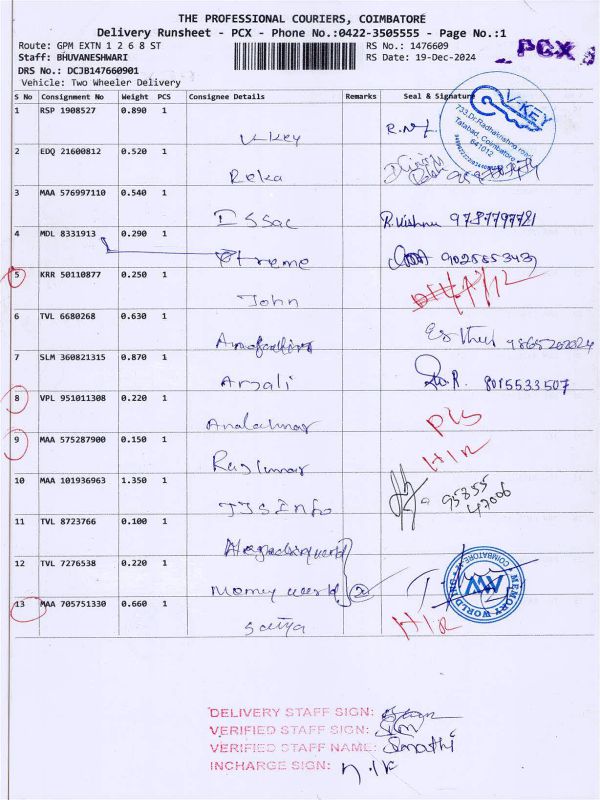 THE PROFESSIONAL COURIERS, COIMBATORE
Delivery Runsheet - PCX - Phone No.:0422-3505555 - Page No.:1
Route: GPM EXTN 1 2 6 8 ST RS No.: 1476609
Staff: BHUVANESHWARI RS Date: 19-Dec-2024
PCX
DRS No.: DCJB147660901
Vehicle: Two Wheeler Delivery
S No Consignment No Weight PCS Consignee Details Remarks Seal & Signature
1 RSP 1908527 0.890 1 V-Key
V-KEY
733, Dr. Radhakrishnan road
Tatabad, Coimbatore
641012
2 EDQ 21600812 0.520 1 Roka
3 MAA 576997110 0.540 1 Issac R. Vishnu 9787797721
4 MDL 8331913 0.290 1 Xtreme
5 KRR 50110877 0.250 1 John
6 TVL 6680268 0.630 1 Esther 9865202024
7 SLM 360821315 0.870 1 8015533507
8 VPL 951011308 0.220 1
9 MAA 575287900 0.150 1 Rajkumar H/R
10 MAA 101936963 1.350 1 95855 47006
11 TVL 8723766 0.100 1
12 TVL 7276538 0.220 1 Momery world
MEMORY WORLD INC COIMBATORE
MW
13 MAA 705751330 0.660 1 Satya H/R
DELIVERY STAFF SIGN:
VERIFIED STAFF SIGN:
VERIFIED STAFF NAME:
INCHARGE SIGN: